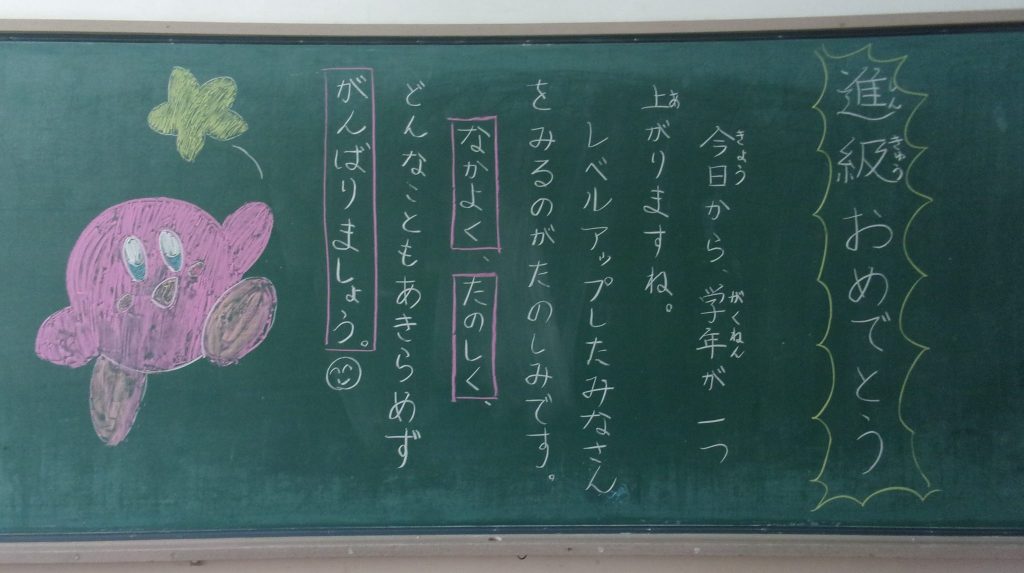 進級おめでとう
今日から、学年が一つ
上がりますね。
レベルアップしたみなさん
をみるのがたのしみです。
なかよく、たのしく、
どんなこともあきらめず
がんばりましょう。